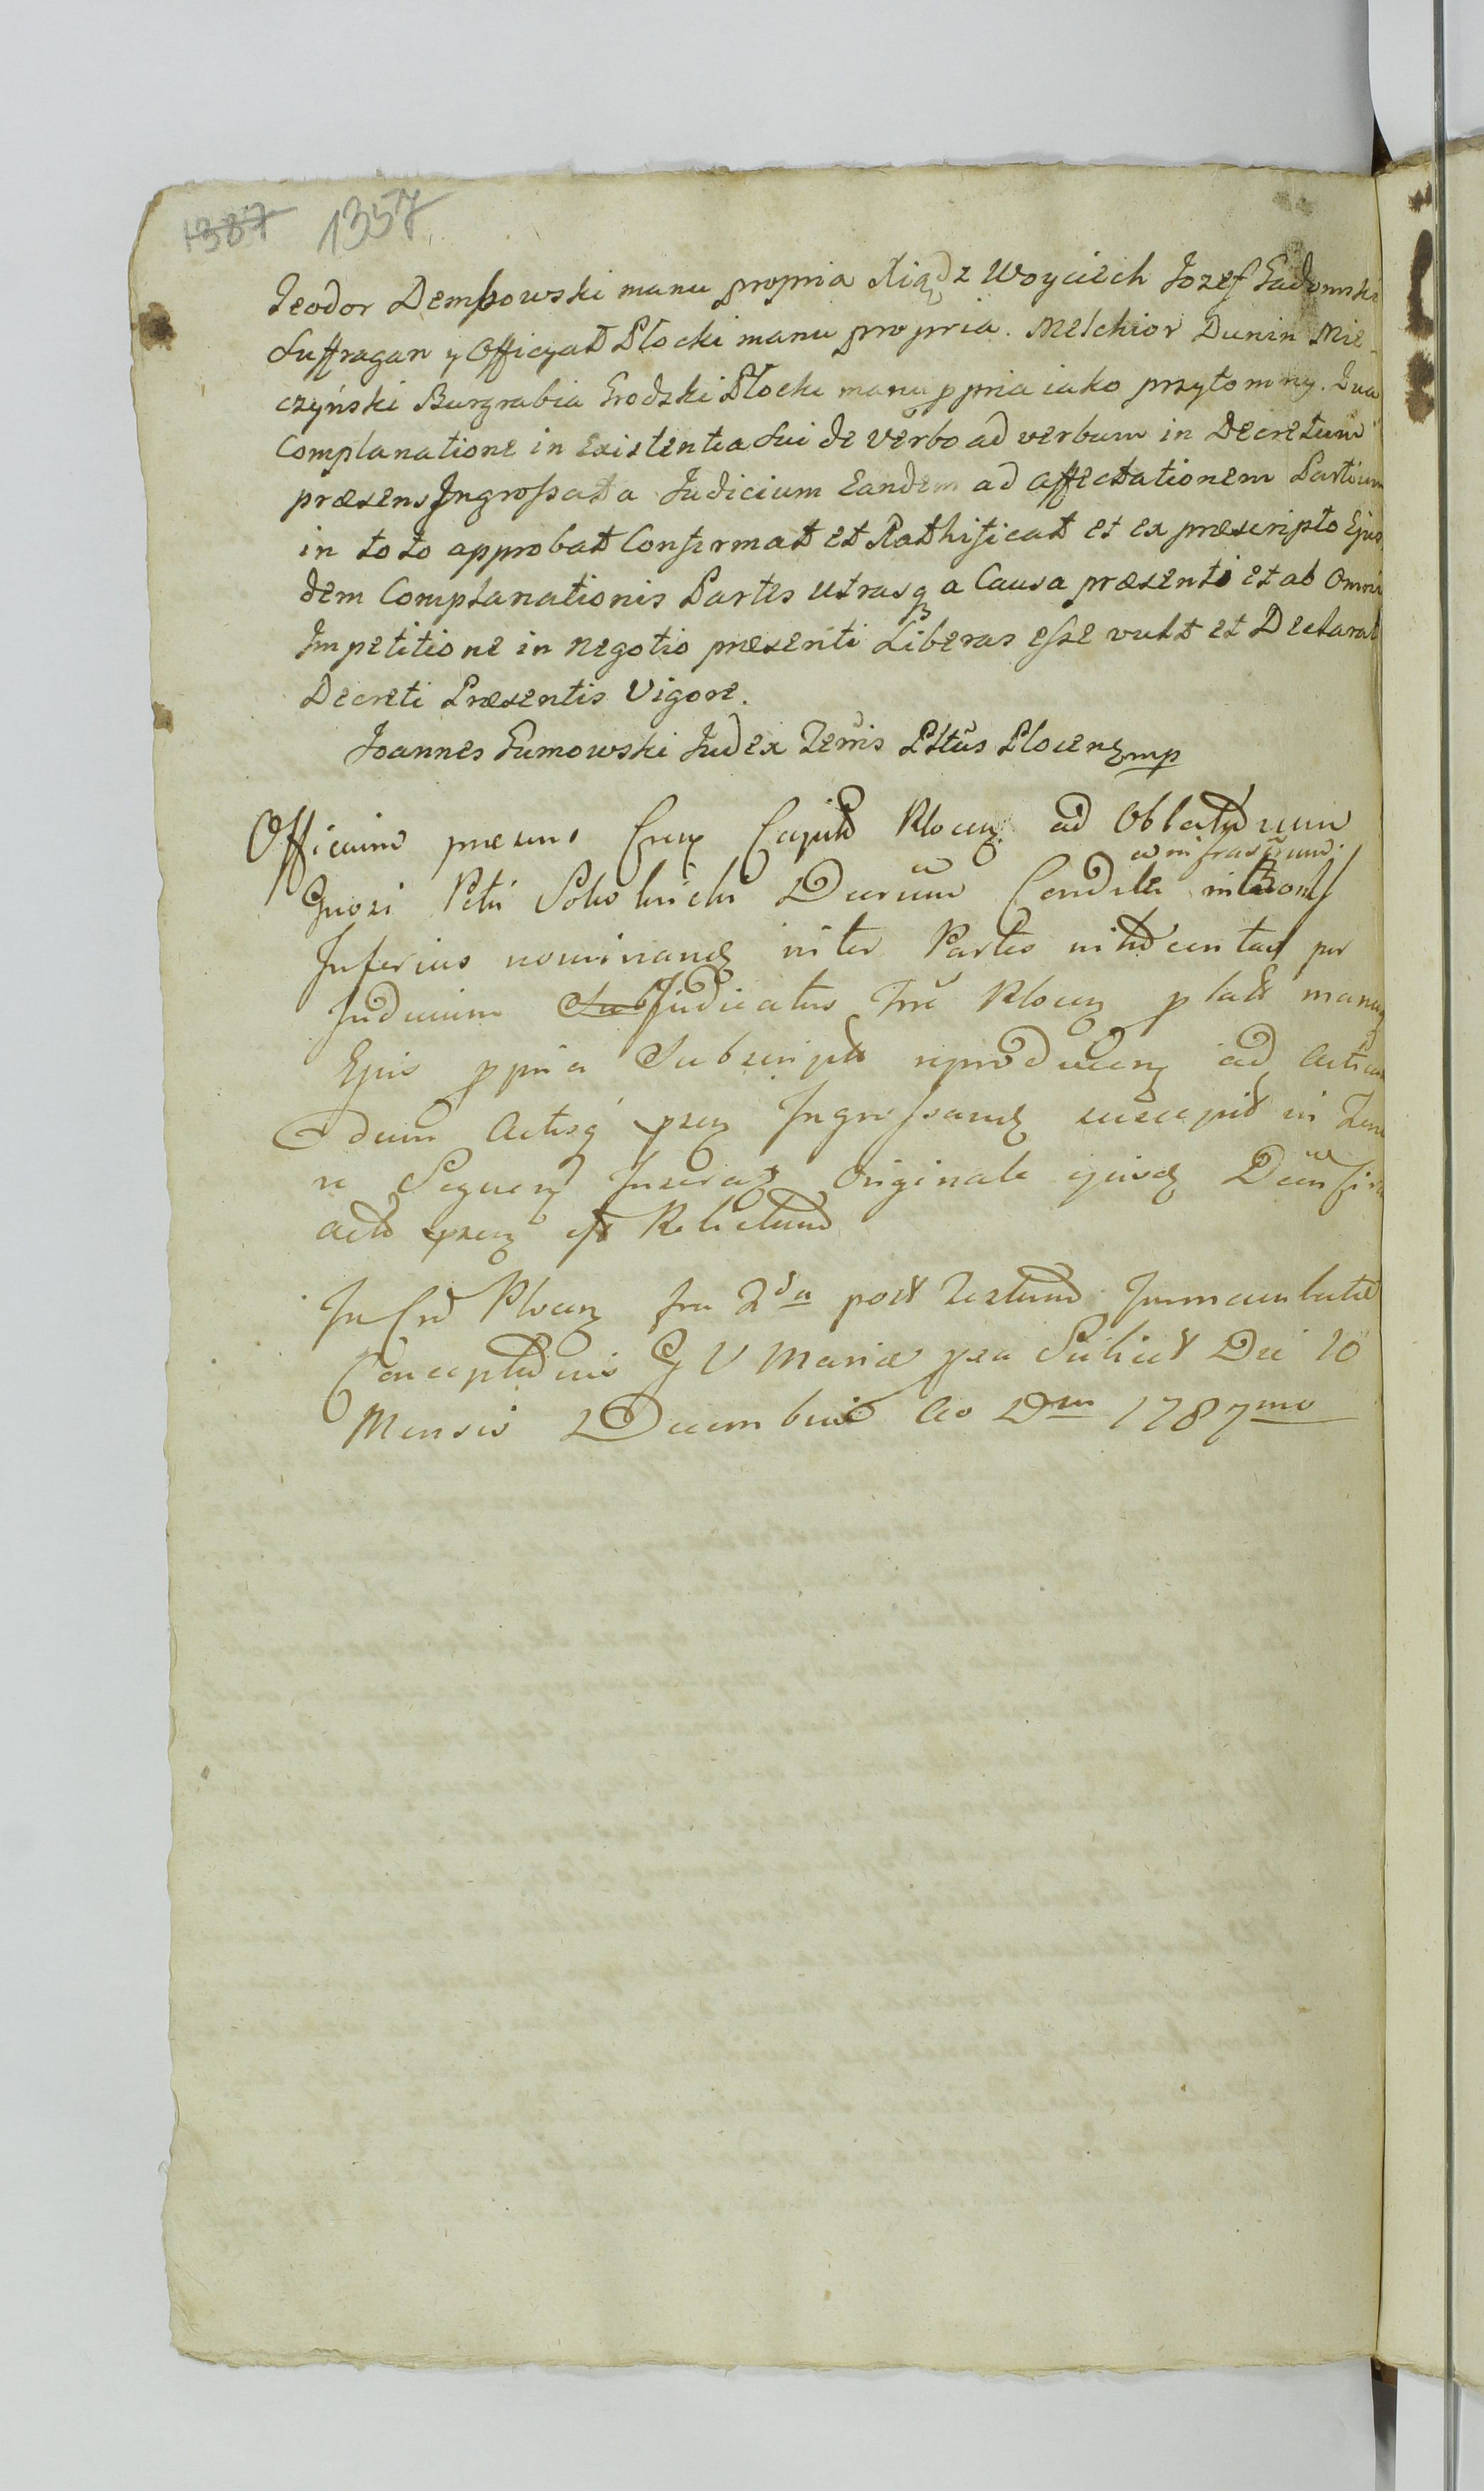 1387 1357
Teodor Dempowski manu propria Xiądz Woyciech Jozef Gadomski
Suffragan y Officyał Płocki manu propria. Melchior Dunin Mie-
czyński Burgrabia Grodzki Płocki manu ppria iako przytomny. Qua
Complanatione in Existentia sui de verbo ad verbum in Decretum
præsens Ingrossata Judicium Eandem ad affectationem Partium
in toto approbat Confirmat et Rathificat et ex præscripto Ejus
dem Complanationis Partes utrasq a Causa præsenti et ab Omni
Impetitione in negotio præsenti Liberas esse vult et Declarat
Decreti Præsentis Vigore.
Joannes Gumowski Judex Terris Pltūs Plocen mp
Officium præsens Cren Capit Plocen ad Oblatam
infrascr
Gnosi Petri Decretum
Inferius nominand inter Partes per
Judicium Sub Judicatus Trē Plocen lat manu
Ejus ppria Subscript reproducen ad Actican
dum Actisq præs Ingrossand suscepit in Teno
re Sequen Originale ejusd
est Relictum
In Crō Plocen fra 2da post Festum Immaculatæ
Conceptionis B V Mariæ Die 10
Mensis Decembris Ao Dni 1787mo